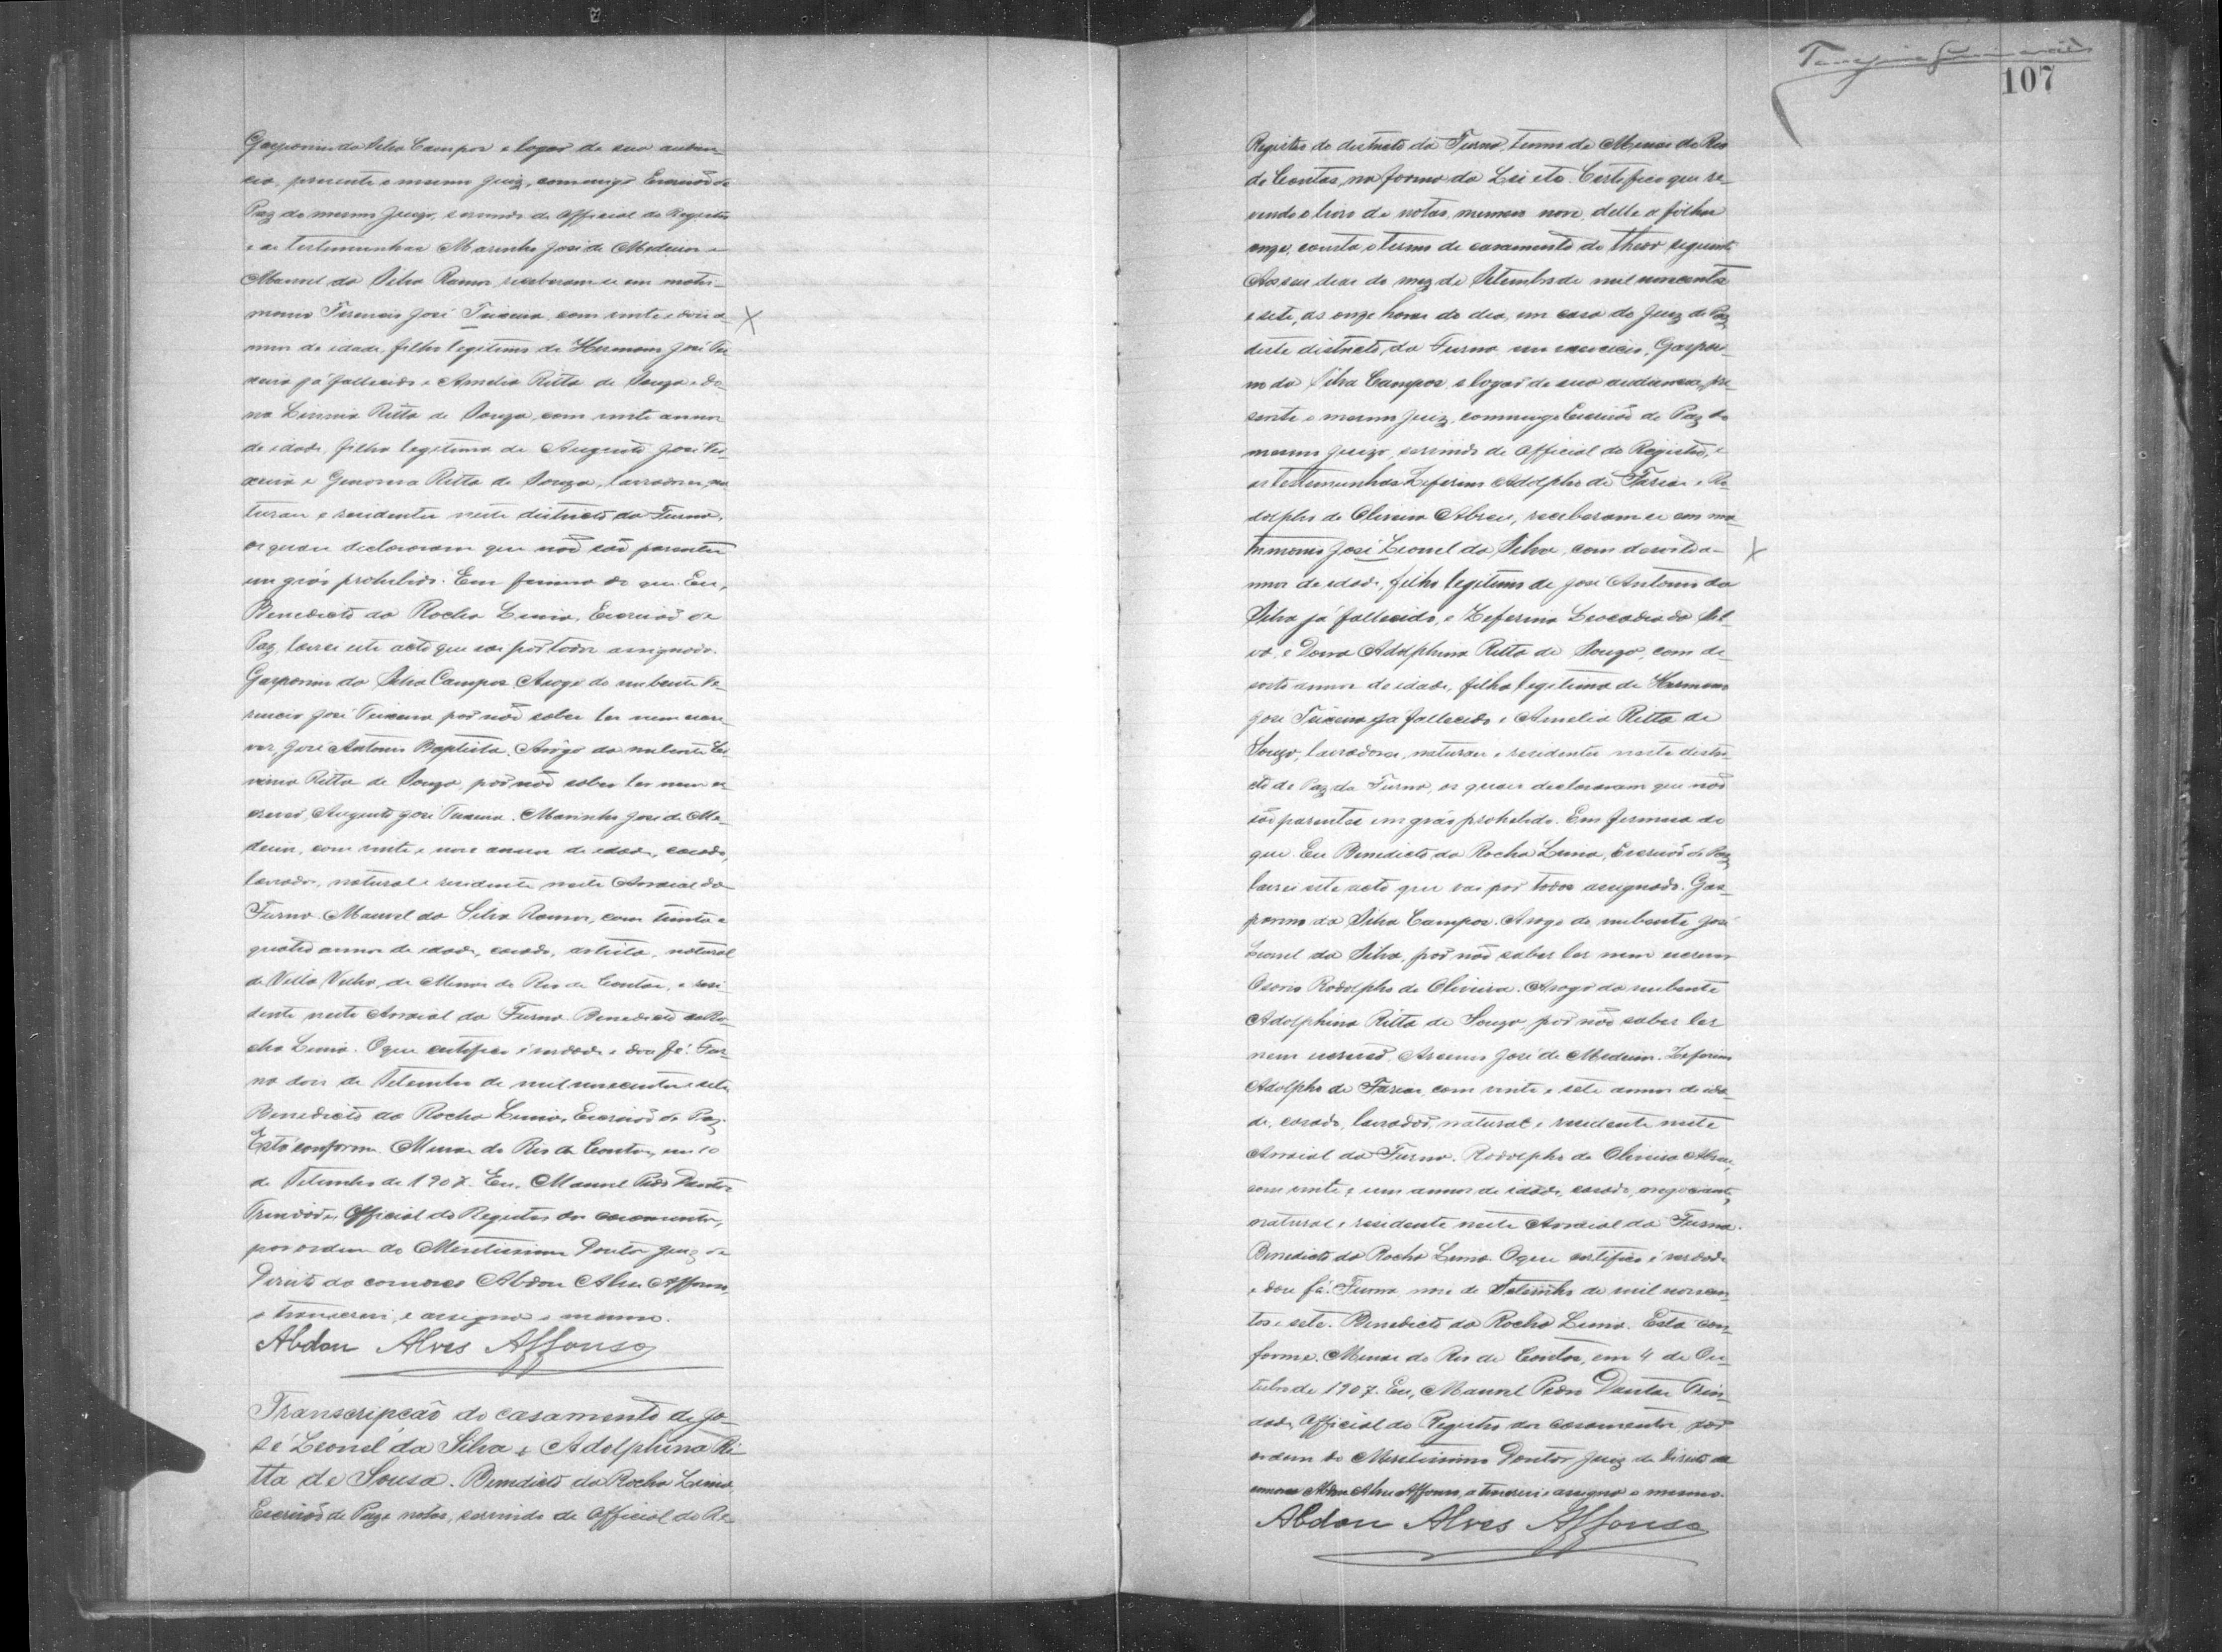 Gasparino da Silva Campos e logar de sua audien-
cia, presente o mesmo Juiz, commigo Escrivão de
Paz do mesmo Juizo, servindo de Official do Registro
e as testemunhas Marinho José de Medeiros e
Manoel da Silva Ramos, receberam-se em matri-
monio Terencio José Teixeira, com vinte e dois a-
nnos de idade, filho legitimo de Hermano José Tei-
xeira já fallecido e Amelia Ritta de Souza e do-
na Ritta de Souza, com vinte annos
de idade, filha legitima de Augusto José Tei-
xeira e Genoveva Ritta de Souza, lavradores, na-
turaes e residentes neste districto da Furna,
os quaes declararam que não são parentes
em gráo prohibido. Em firmeza do que Eu,
Benedicto da Rocha Lima, Escrivão de
Paz, lavrei este acto que vai por todos assignado.
Gasparino da Silva Campos. Arogo do nubente Te-
rencio José Teixeira por não saber ler nem escre-
ver, José Antonio Baptista. Arogo da nubente
Ritta de Souza, por não saber ler nem es-
crever, Augusto José Teixeira. Marinho José de Me-
deiros, com vinte e nove annos de idade, casado,
lavrador, natural e residente neste Arraial da
Furna. Manoel da Silva Ramos, com trinta e
quatro annos de idade, casado, artista, natural
de Villa Velha, de Minas do Rio de Contas, e resi-
dente neste Arraial da Furna. Benedicto da Ro-
cha Lima. O que certifico é verdade e dou fé. Fur-
na dois de Setembro de mil novecentos e sete
Benedicto da Rocha Lima, Escrivão de Paz.
Está conforme. Minas do Rio de Contas, em 10
de Setembro de 1907. Eu, Manoel Pedro Dantas
Trindade, Official do Registro dos casamentos,
por ordem do Meretissimo Doutor Juiz de
Direito da comarca Abdon Alves Affonso,
o transcrevi, e assigna o mesmo.
Abdon Alves Affonso
Transcripção do casamento de Jo-
sé Leonel da Silva e Adelphina Ri-
tta de Sousa. Benedicto da Rocha Lima,
Escrivão de Paz e notas, servindo de Official do Re-
107
Registro do districto da Furna, termo de Minas do Rio
de Contas, na forma da Lei etc. Certifico que re-
vendo o livro de notas, numero nove, delle a folhas
onze, consta o termo de casamento do theor seguinte
Aos seis dias do mez de Setembro de mil novecentos
e sete, as onze horas do dia, em casa do Juiz de Paz
deste districto da Furna em exercicio, Gaspari-
no da Silva Campos, e logar de sua audiencia, pre-
sente o mesmo Juiz, commigo Escrivão de Paz do
mesmo Juizo, servindo de Official do Registro, e
as testemunhas Zeferino Adolpho de Farias e Ro-
dolpho de Oliveira Abreu, receberam-se em ma-
trimonio José Leonel da Silva, com desoito a-
nnos de idade, filho legitimo de José Antonio da
Silva já fallecido, e Zeferina Leocadia da Sil-
va, e Dona Adelphina Ritta de Souza, com de-
soito annos de idade, filha legitima de Hermano
José Teixeira já fallecido e Amelia Ritta de
Souza, lavradores, naturaes e residentes neste distri-
cto de Paz da Furna, os quaes declararam que não
são parentes em gráo prohibido. Em firmeza do
que Eu Benedicto da Rocha Lima, Escrivão de Paz
lavrei este acto que vai por todos assignado. Gas-
parino da Silva Campos. Arogo do nubente José
Leonel da Silva, por não saber ler nem escrever
Osorio Rodolpho de Oliveira. Arogo da nubente
Adolphina Ritta de Souza, por não saber ler
nem escrever, José de Medeiros. Zeferino
Adolpho de Farias, com vinte e sete annos de ida-
de, casado, lavrador, natural e residente neste
Arraial da Furna. Rodolpho de Oliveira Abreu,
com vinte e um annos de idade, casado, negociante,
natural e residente neste Arraial da Furna.
Benedicto da Rocha Lima. O que certifico é verdade
e dou fé. Furna nove de Setembro de mil novecen-
tos e sete. Benedicto da Rocha Lima. Está con-
forme. Minas do Rio de Contas, em 4 de Ou-
tubro de 1907. Eu, Manoel Pedro Dantas Trin-
dade, Official do Registro dos casamentos por
ordem do Meretissimo Doutor Juiz de Direito da
comarca Abdon Alves Affonso, o transcrevi e assigna o mesmo.
Abdon Alves Affonso